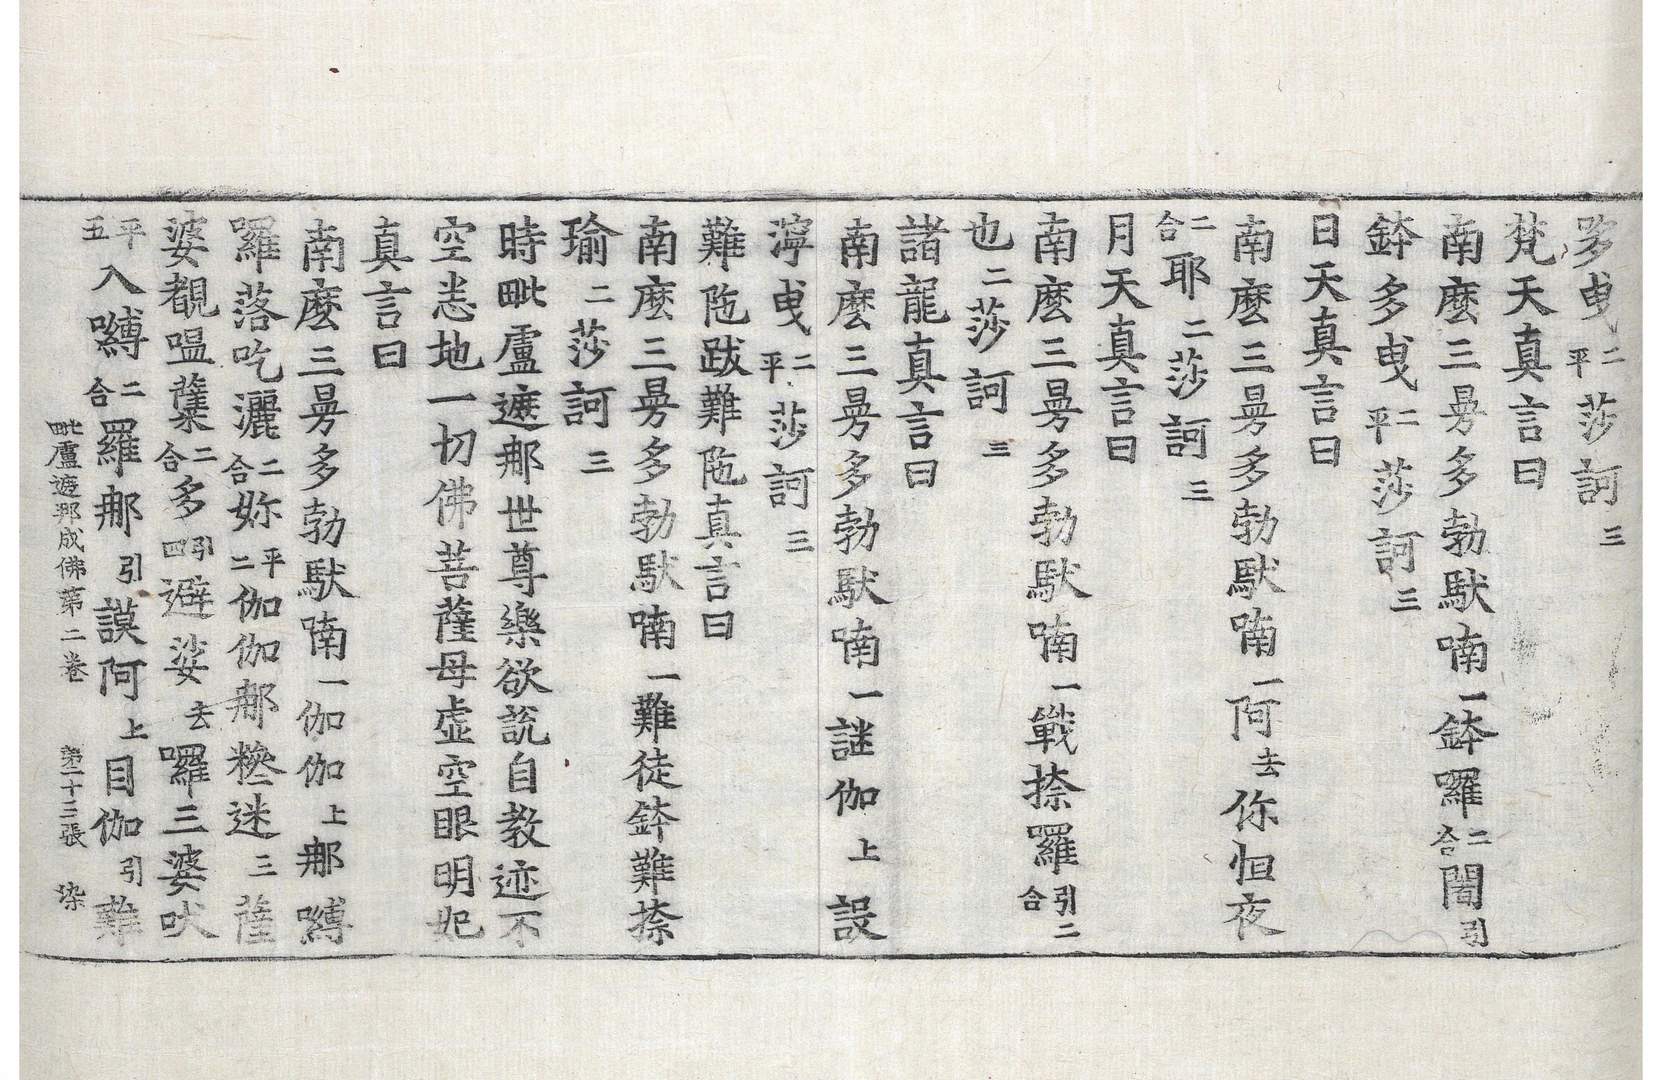 多曳二平莎訶三
梵天真言曰
南麼三曼多勃馱喃一鉢囉二合闍引
鉢多曳二平莎訶三
日天真言曰
南麼三曼多勃馱喃一阿去你怛夜
二合耶二莎訶三
月天真言曰
南麼三曼多勃馱喃一戰捺囉引二合
也二莎訶三
諸龍真言曰
南麼三曼多勃馱喃一謎伽上設
濘曳二平莎訶三
難陁跋難陁真言曰
南麼三曼多勃馱喃一難徒鉢難捺
瑜二莎訶三
時毗盧遮那世尊樂欲說自教迹不
空悉地一切佛菩薩母虛空眼明妃
真言曰
南麼三曼多勃馱喃一伽伽上那嚩
囉落吃灑二合妳平二伽伽那糝迷三薩
婆覩嗢蘖二合多引四避娑去囉三婆吠
平五入嚩二合羅那引謨阿上目伽引難
毗盧遮那成佛第二卷 第二十三張 染